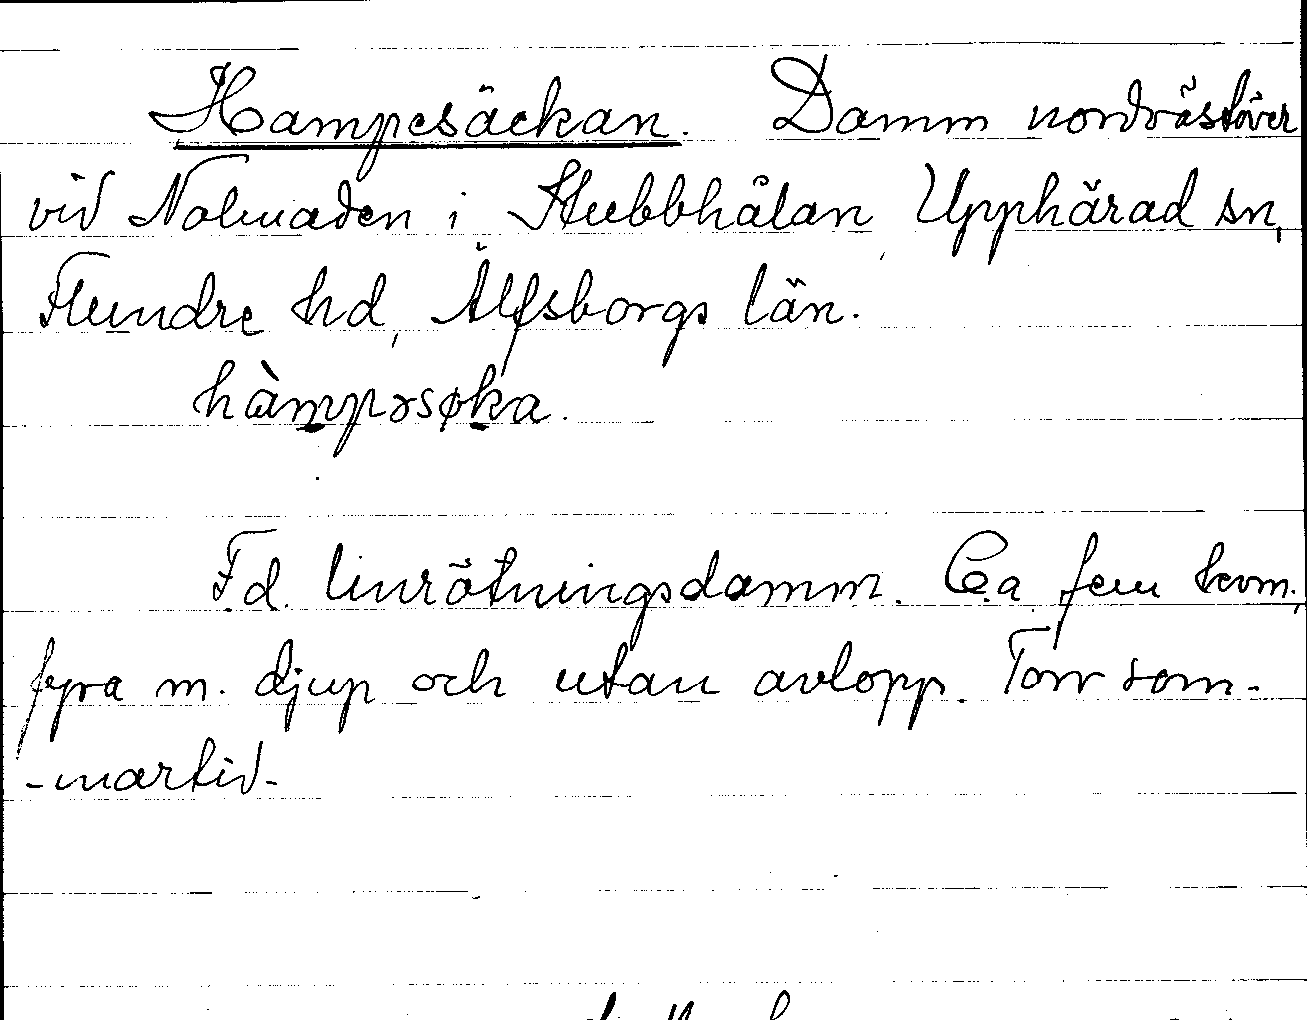 Hampesäckan. Damm nordvästöver
vid Nolmaden i Stubbhålan, Upphärad sn,
Flundre hd, Älfsborgs län.
hàmpəsøka.
F.d. linrötningsdamm. C:a fem kvm.,
fyra m. djup och utan avlopp. Torr som-
-martid-